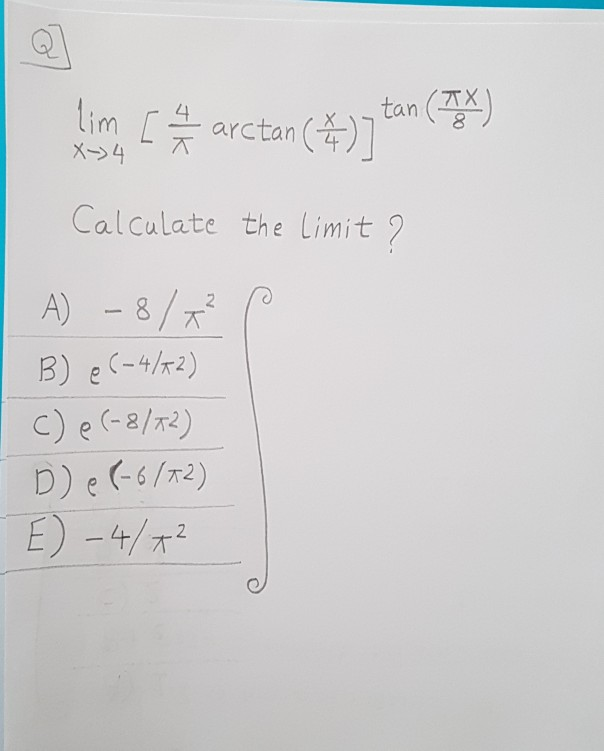 Q]
lim x→4 [4/π arctan(x/4)]^tan(πx/8)
Calculate the limit?
A) -8/π²
B) e(-4/π2)
C) e(-8/π2)
D) e(-6/π2)
E) -4/π²